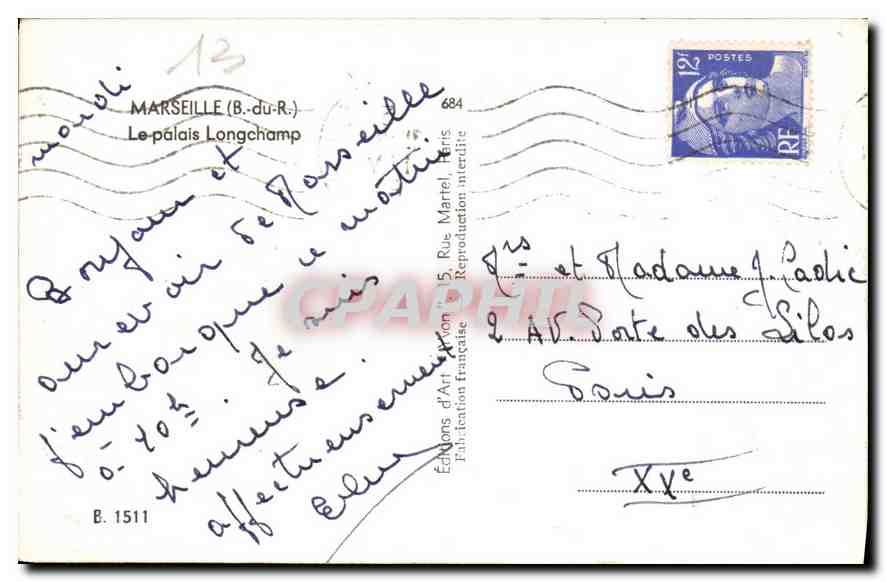 13
MARSEILLE (B.-du-R.)
Le palais Longchamp
mardi
Bonjour et
au revoir de Marseille
j'embarque ce matin
à 10h. Je suis
heureuse.
affectueusement
B. 1511
684
Éditions d'Art Yvon, 15, Rue Martel, Paris
Fabrication française - Reproduction interdite
CPAPHIL
12F
POSTES
RF
Mrs et Madame J.
2 AV. Porte des Lilas
Paris
XXe